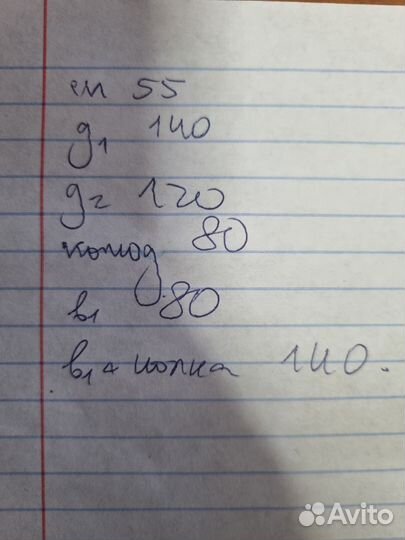 ел 55
д1 140
д2 120
колод 80
в1 80
в1+ колка 140.
Avito